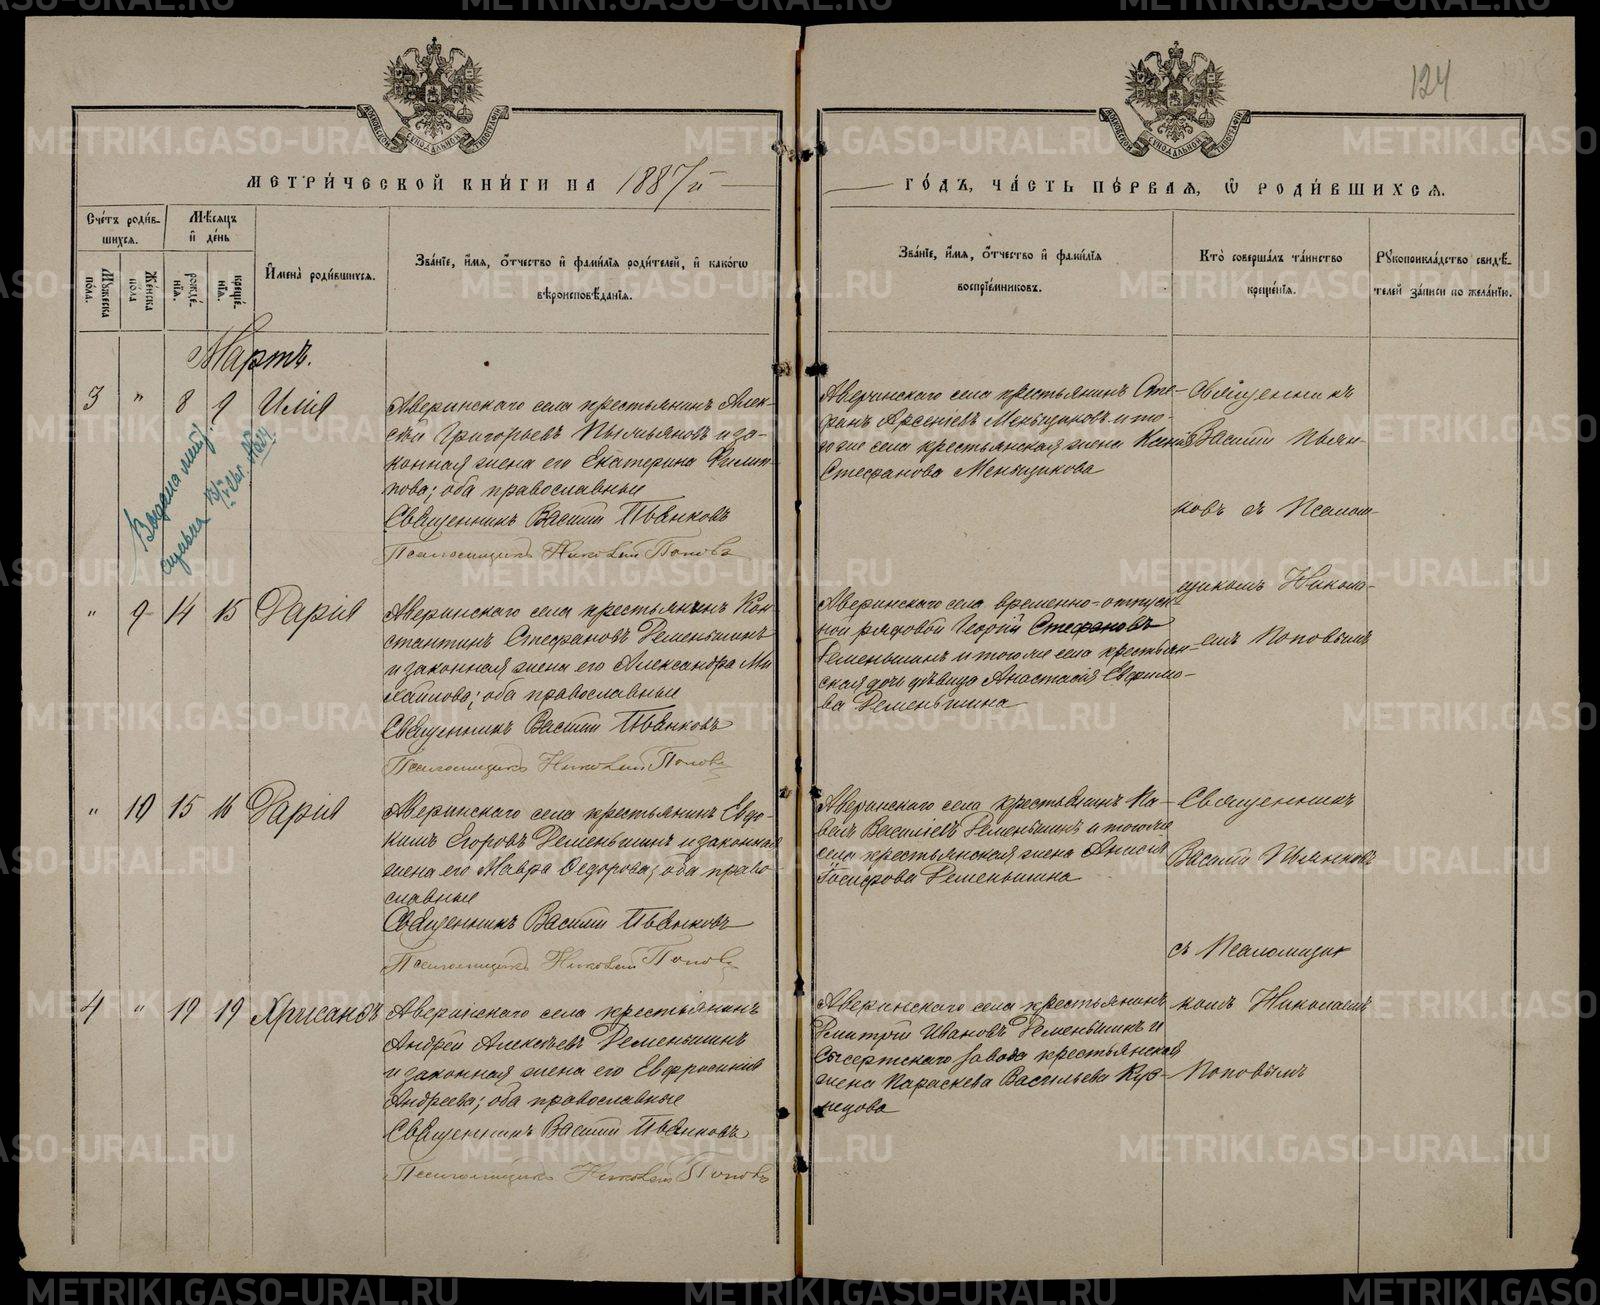 124
МЕТРИ́ЧЕСКОЙ КНИ́ГИ НА 1887й
ГО́ДЪ, ЧА́СТЬ ПЕ́РВАЯ, Ѿ РОДИ́ВШИХСЯ.
Сче́тъ роди́в-
шихся.
Мѣ́сяцъ
и̑ де́нь
Мꙋжеска
пола.
Же́нска
пола
рожде́-
нїя.
креще́-
нїя.
И҆мена̀ роди́вшихся.
Зва́нїе, и҆́мя, ѻ҆́тчество и҆ фами́лїя роди́телей, и҆ како́гѡ
вѣроисповѣ́данїя.
Зва́нїе, и҆́мя, ѻ҆́тчество и҆ фами́лїя
воспрїе́мниковъ.
Кто̀ соверша́лъ та́инство
креще́нїя.
Рꙋкоприкла́дство свидѣ́-
телей за́писи по жела́нїю.
Мартъ.
3 " 8 9 Илія
Аверинскаго села крестьянинъ Алек-
сѣй Григорьевъ и за-
конная жена его Екатерина Филип-
пова; оба православные
Священникъ Василій Пьянковъ
Псаломщикъ Николай Поповъ
Аверинскаго села крестьянинъ Сте-
фанъ Арсеніевъ Меньщиковъ и то-
гоже села крестьянская жена Ксенія
Стефанова Меньщикова
Священникъ
Василій Пьян-
ковъ съ Псалом-
щикомъ Никола-
емъ Поповымъ
" 9 14 15 Дарія
Аверинскаго села крестьянинъ Кон-
стантинъ Стефановъ Деменьшинъ
и законная жена его Александра Ми-
хайлова; оба православные
Священникъ Василій Пьянковъ
Псаломщикъ Николай Поповъ
Аверинскаго села временно-отпуск-
ной рядовой Георгій Стефановъ
Деменьшинъ и тогоже села крестьян-
ская дочь дѣвица Анастасія Евфимо-
ва Деменьшина
" 10 15 16 Дарія
Аверинскаго села крестьянинъ Евдо-
кимъ Егоровъ Деменьшинъ и законная
жена его Мавра Ѳедорова; оба право-
славные
Священникъ Василій Пьянковъ
Псаломщикъ Николай Поповъ
Аверинскаго села крестьянинъ Па-
велъ Василіевъ Деменьшинъ и тогоже
села крестьянская жена Анисія
Іосифова Деменьшина
Священникъ
Василій Пьянковъ
съ Псаломщи-
комъ Николаемъ
Поповымъ
4 " 19 19 Хрисанѳъ
Аверинскаго села крестьянинъ
Андрей Алексѣевъ Деменьшинъ
и законная жена его Евфросинія
Андреева; оба православные
Священникъ Василій Пьянковъ
Псаломщикъ Николай Поповъ
Аверинскаго села крестьянинъ
Димитрій Ивановъ Деменьшинъ и
Сысертскаго завода крестьянская
жена Параскева Васильева Куз-
нецова
METRIKI.GASO-URAL.RU